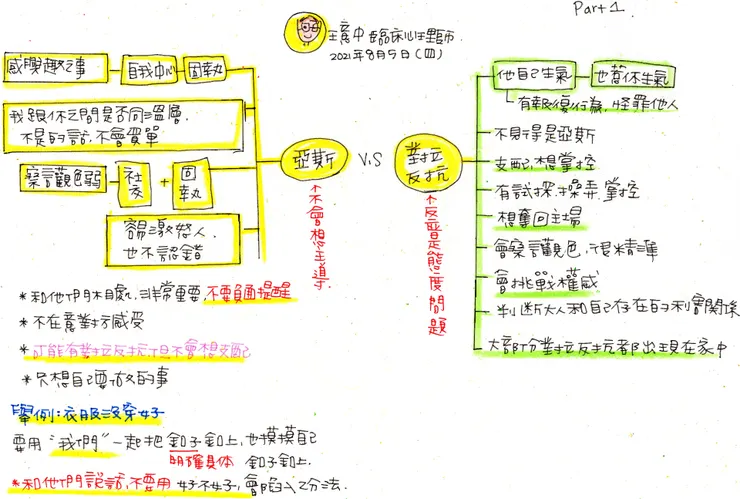 Part 1
王意中 臨床心理師
2021年8月5日(四)
感興趣之事
自我中心
固執
我跟你之間是否同溫層,
不是的話,不會買單
察言觀色弱
社交
+
固執
容易激怒人,
也不認錯
亞斯
V.S
對立
反抗
↑不會想主導
↑反需是態度問題
他自己生氣
也惹你生氣
有報復行為,怪罪他人
不見得是亞斯
支配,想掌控
有試探,操弄,掌控
想奪回主場
會察言觀色,很精準
會挑戰權威
判斷大人和自己存在的利害關係
大部份對立反抗都出現在家中
*和他們相處,非常重要,不要負面提醒
*不在意對方感受
*可能有對立反抗,但不會想支配
*只想自己要做的事
舉例:衣服沒穿好
要用“我們”一起把釦子釦上,也摸摸自己
明確具體 釦子釦上.
*和他們說話,不要用 好不好,會陷入2分法.